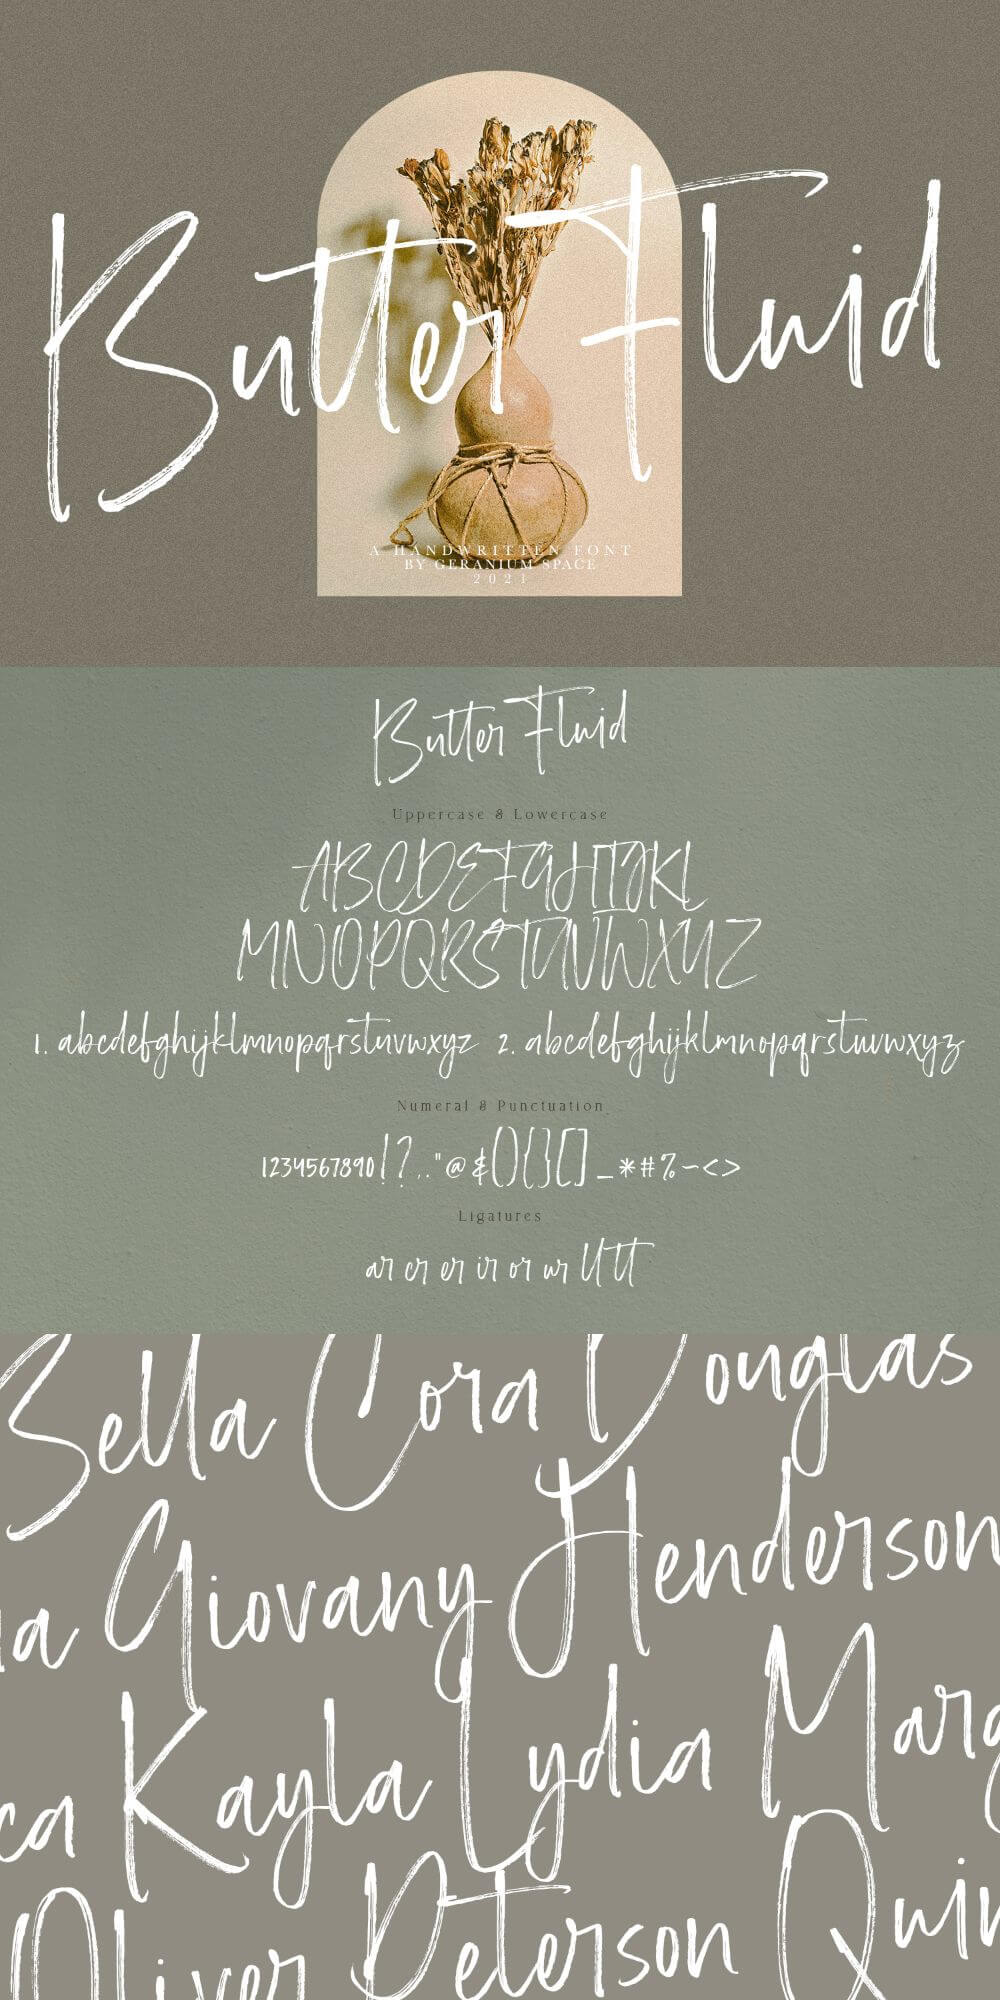 Butter Fluid
A HANDWRITTEN FONT
BY GERANIUM SPACE
2021
Butter Fluid
Uppercase & Lowercase
ABCDEFGHIJKL
MNOPQRSTUVWXYZ
1. abcdefghijklmnopqrstuvwxyz 2. abcdefghijklmnopqrstuvwxyz
Numeral & Punctuation
1234567890!?,."@&(){}[]_*#%~<>
Ligatures
ar cr er ir or ur ll tt
Bella Cora Douglas
a Giovany Henderson
ca Kayla Lydia Marg
Oliver Peterson Quin